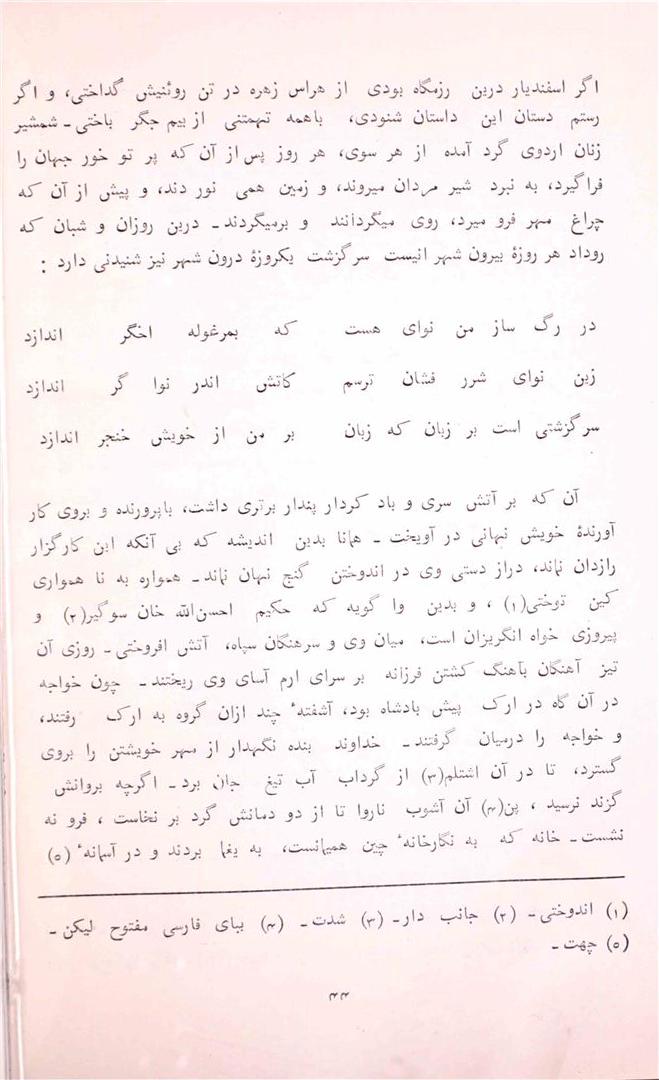 اگر اسفندیار درین رزمگاه بودی از هراس زهره در تن روئنیش گداختی، و اگر
رستم دستان این داستان شنودی، باهمه تهمتنی از بیم جگر باختی۔ شمشیر
زنان اردوی گرد آمده از هر سوی، هر روز پس از آن که پر تو خور جهان را
فراگیرد، به نبرد شیر مردان میروند، و زمین همی نور دند، و پیش از آن که
چراغ مهر فرو میرد، روی میگردانند و برمیگردند۔ درین روزان و شبان که
روداد هر روزۀ بیرون شهر انیست سرگزشت یکروزۀ درون شهر نیز شنیدنی دارد :
در رگ ساز من نوای هست که بمرغوله اخگر اندازد
زین نوای شرر فشان ترسم کاتش اندر نوا گر اندازد
سرگزشتی است بر زبان که زبان بر من از خویش خنجر اندازد
آن که بر آتش سری و باد کردار پندار برتری داشت، باپرورنده و بروی کار
آورندۀ خویش نهانی در آویخت ۔ همانا بدین اندیشه که بی آنکه این کارگزار
رازدان نماند، دراز دستی وی در اندوختن گنج نهان نماند۔ همواره به نا همواری
کین توختی(۱) ، و بدین وا گویه که حکیم احسن‌الله خان سوگیر(۲) و
پیروزی خواه انگریزان است، میان وی و سرهنگان سپاه، آتش افروختی۔ روزی آن
تیز آهنگان بآهنگ کشتن فرزانه بر سرای ارم آسای وی ریختند۔ چون خواجه
در آن گاه در ارک پیش بادشاه بود، آشفتهٴ چند ازان گروه به ارک رفتند،
و خواجه را درمیان گرفتند۔ خداوند بنده نگهدار از مهر خویشتن را بروی
گسترد، تا در آن اشتلم(۳) از گرداب آب تیغ جان برد۔ اگرچه بروانش
گزند نرسید ، پن(۴) آن آشوب ناروا تا از دو دمانش گرد بر نخاست ، فرو نه
نشست۔ خانه که به نگارخانهٴ چین همیمانست، به یغما بردند و در آسمانهٴ (۵)
(۱) اندوختی۔ (۲) جانب دار۔ (۳) شدت۔ (۴) ببای فارسی مفتوح لیکن۔
(۵) چهت۔
۴۴